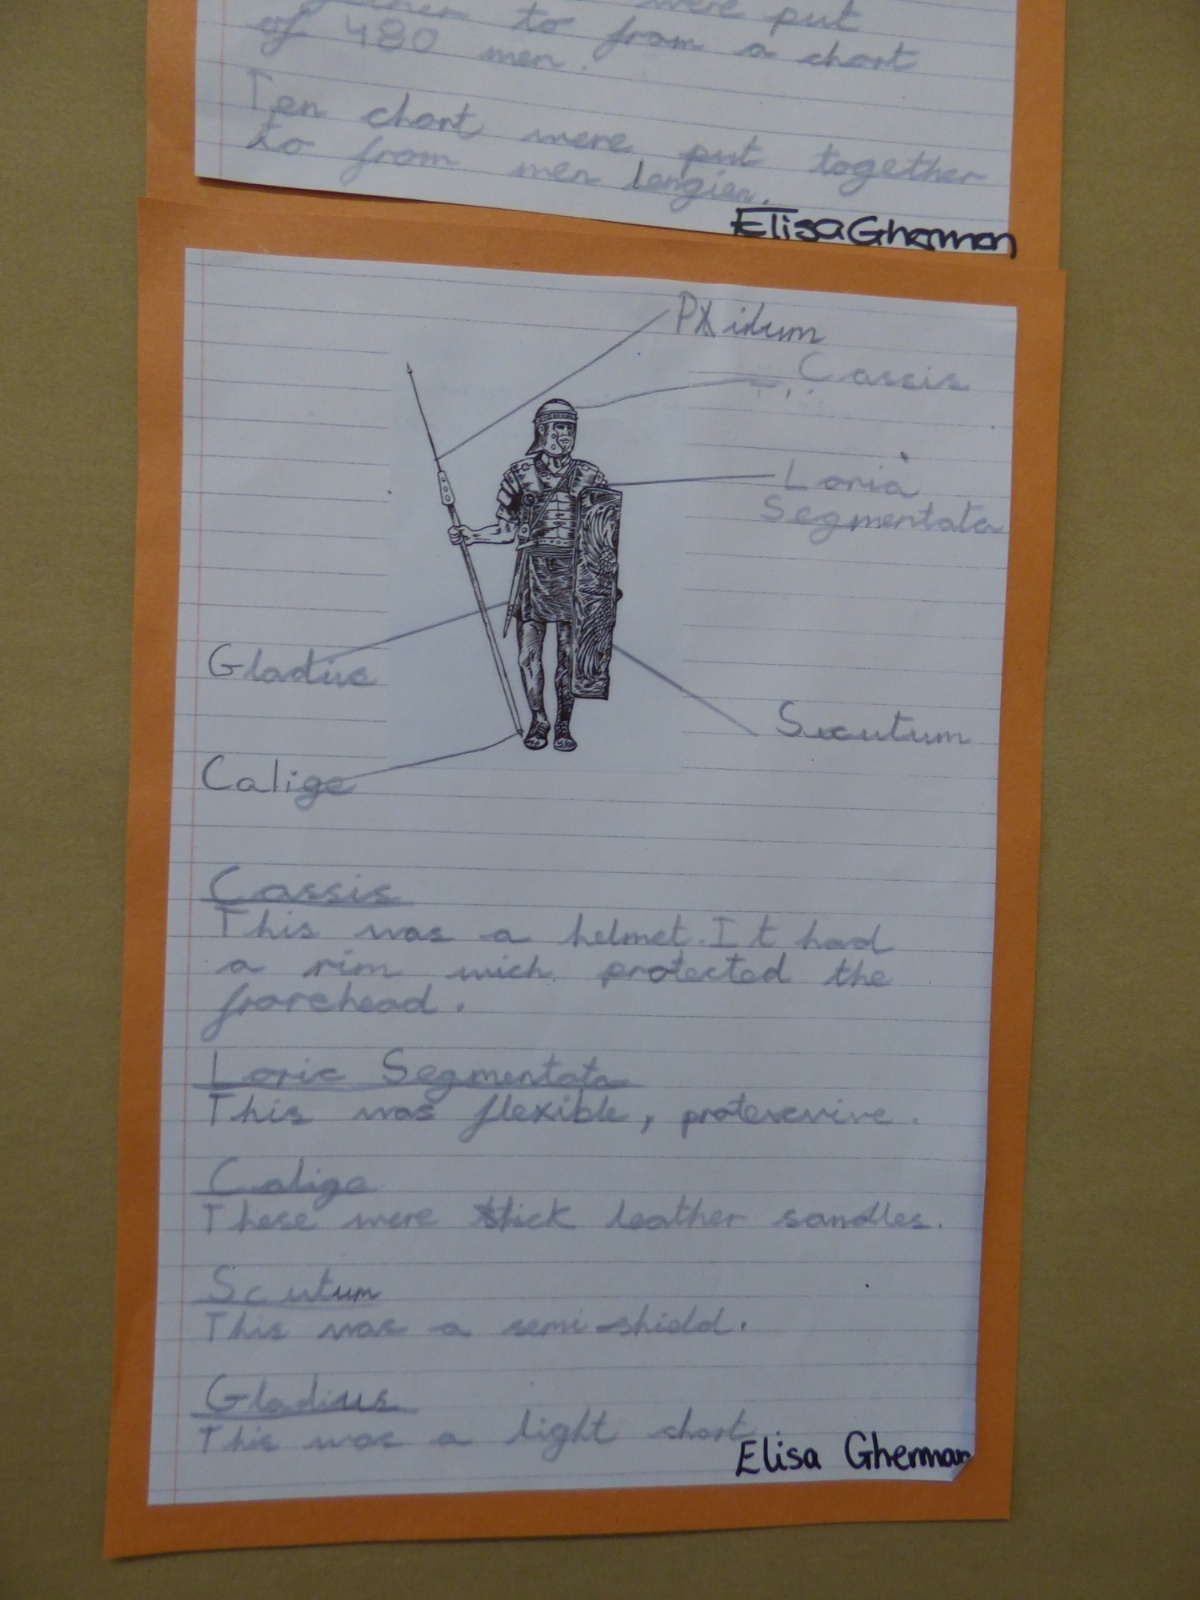 were put
to from a chart
of 480 men.
Ten chart were put together
to from men lengien.
Elisa Gherman
Cassis
Loria
Segmentata
Gladius
Scutum
Calige
Cassis
This was a helmet. It had
a rim wich protected the
frorehead.
Loric Segmentata
This was flexible,
Calige
These were thick leather sandles.
Scutum
This was a semi-shield.
Gladius
This was a light short
Elisa Gherman